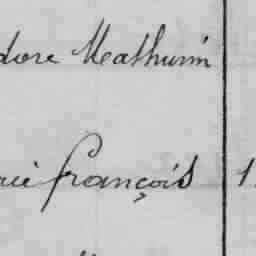 dore Mathurin
françois 1